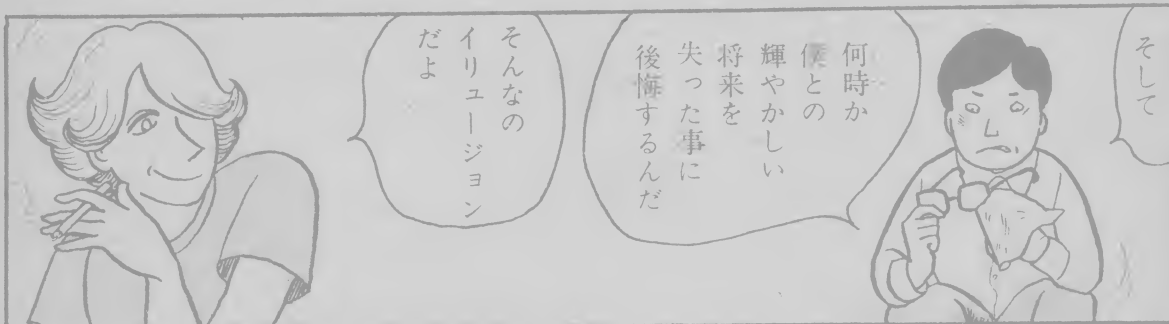 そして
何時か
僕との
輝やかしい
将来を
失った事に
後悔するんだ
そんなの
イリュージョン
だよ